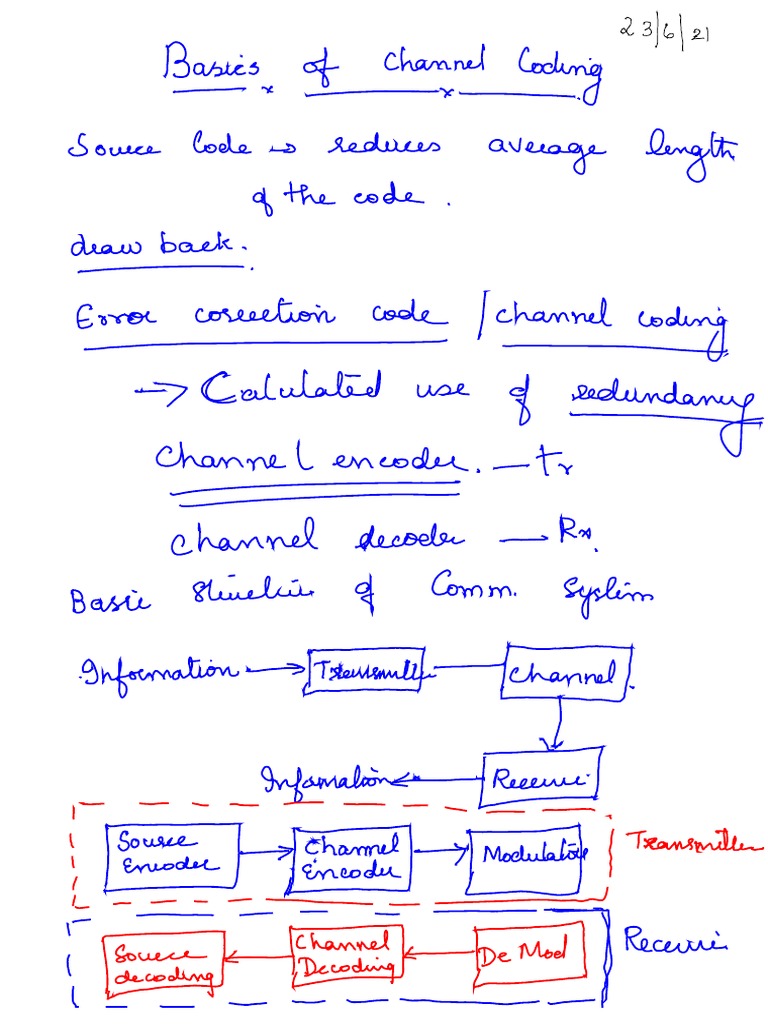 23/6/21
Basics of Channel Coding
Source Code → reduces average length
of the code.
draw back.
Error correction code / channel coding
→ Calculated use of redundancy
Channel encoder. — Tr
Channel decoder — Rx.
Basic Structure of Comm. System
Information → Transmitter Channel.
Information ← Receiver
Source Encoder → Channel Encoder → Modulator Transmitter
Source decoding ← Channel Decoding ← De Mod Receiver